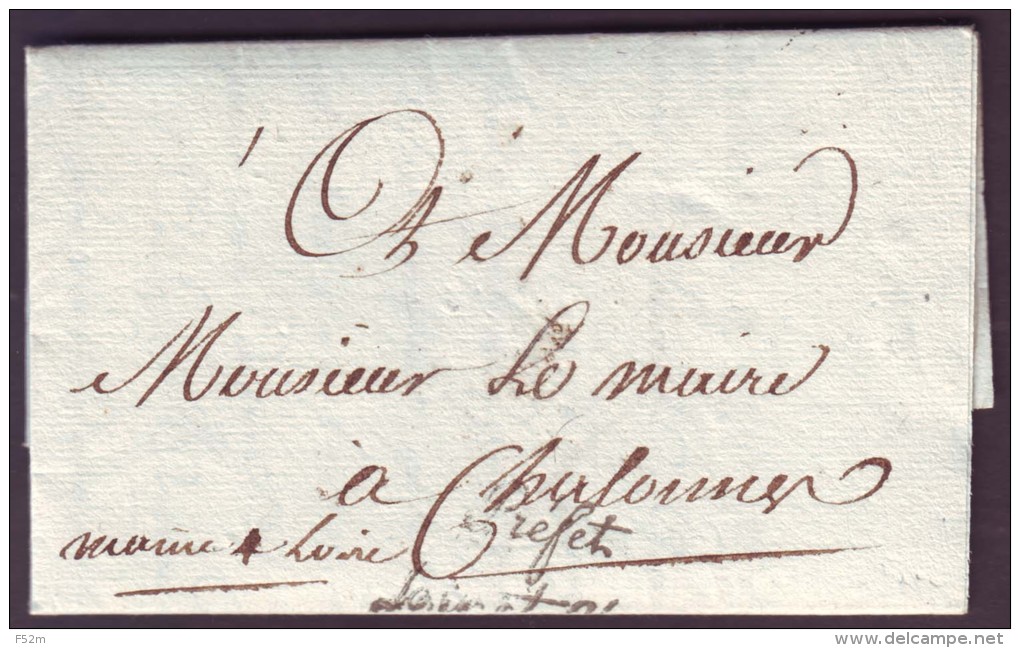 A Monsieur
Monsieur Le maire
à Chalonnes
maine & Loire
Prefet
F52m
www.delcampe.net